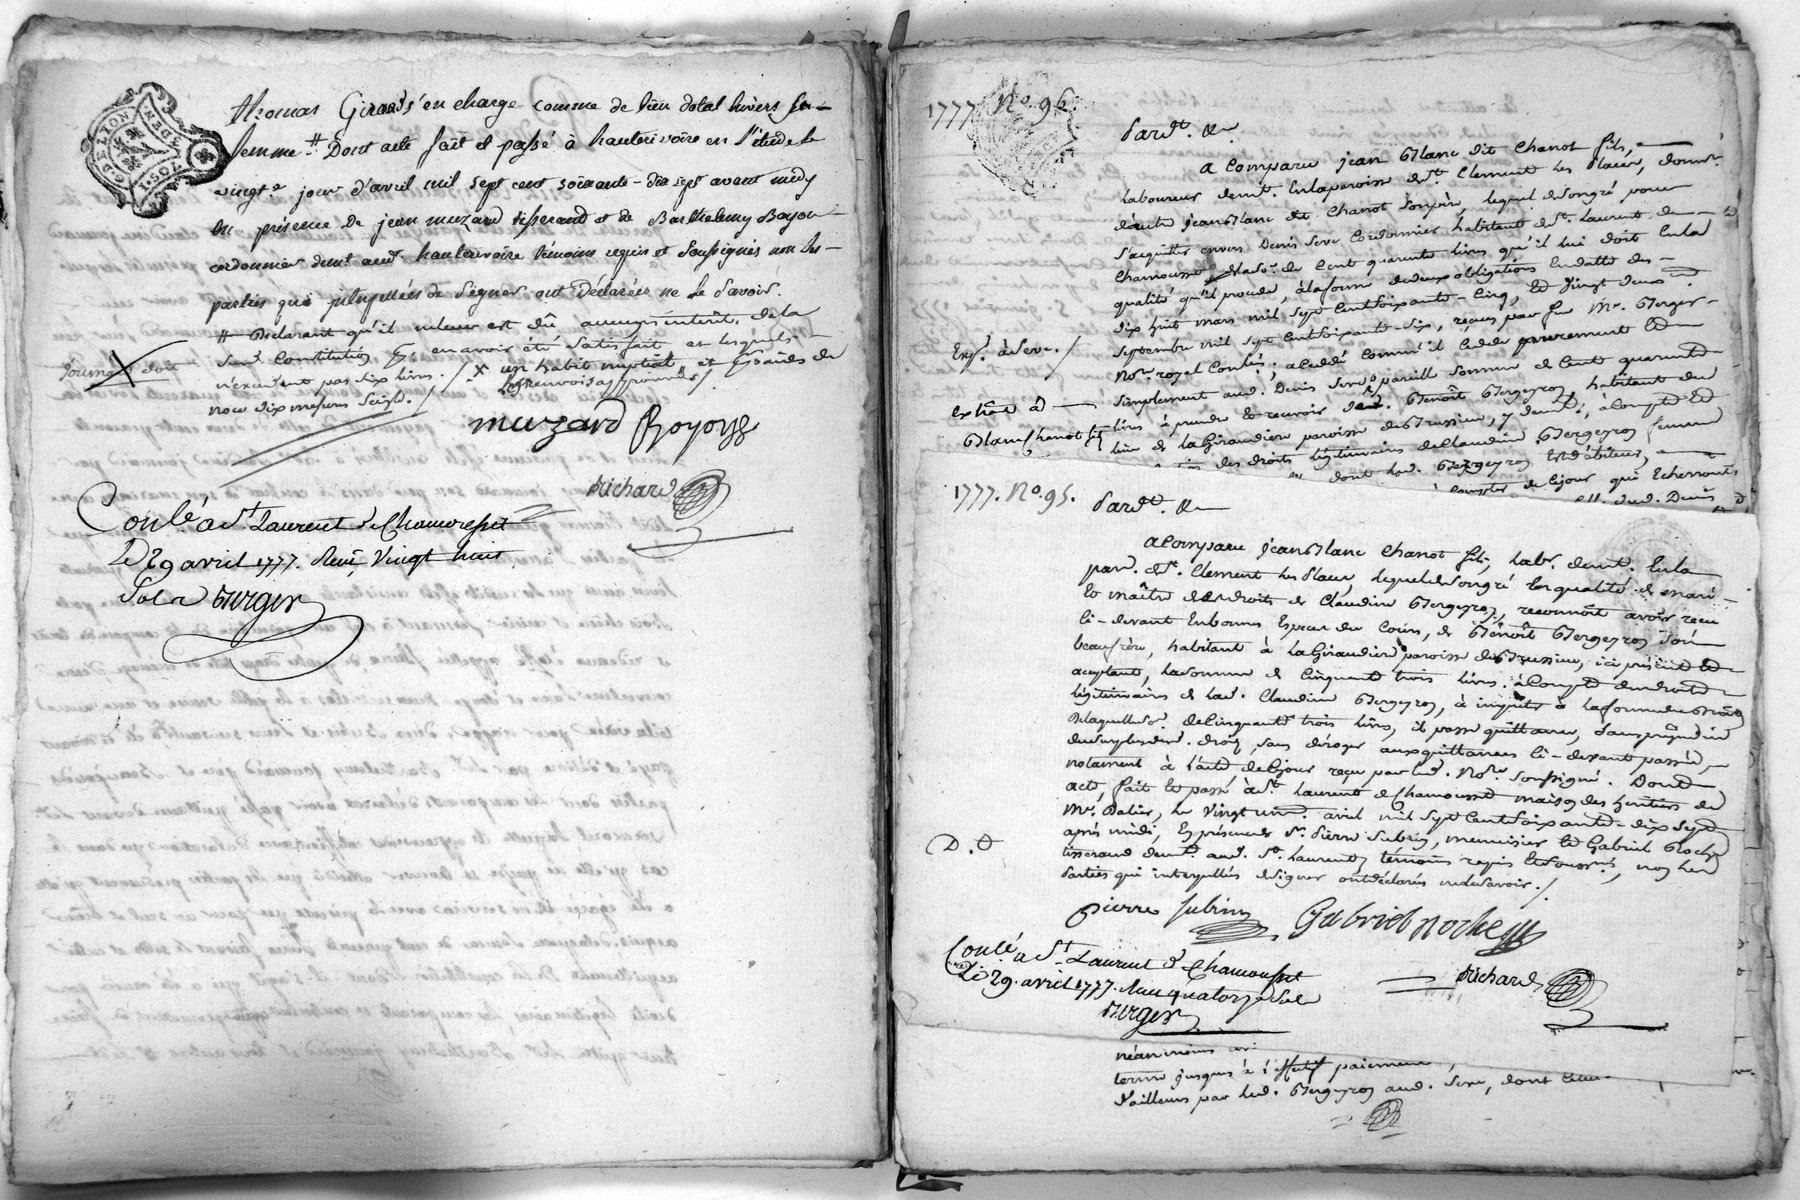 G. DE LION
DEN.
2 SOLS
Thomas Girard s'en charge comme de bien dotal envers sa
femme # Dont acte fait et passé à hauterivoire en l'étude le
vingte jour d'avril mil sept cent soixante-dix sept avant midy
en présence de jean muzard tisserand et de Barthelemy Boyon
cordonnier demt. aud. hauterivoire témoins requis et soussignés non les
parties qui interpellées de signer ont déclarées ne le savoir.
# Déclarant qu'il ne leur est dû aucungs interêt de la
constitution en avoir été satisfait et lesquels
n'excedent pas dix livres. / x un habit nuptial et
noce dix mesures seigle. /
renvois approuvés /
muzard Boyon
Richard
Conlé a St. Laurent de Chamousset
Le 29 avril 1777. Reçu Vingt huit
Sols Berger
1777. No. 96.
Pardt. &
A Comparu jean Blanc dit Chanot fils,
laboureur demt. en la paroisse de St. Clement les Places, donnr.
d'autre jean Blanc dit Chanot son père, lequel de son gré pour
s'acquitter envers Denis Seve Cordonnier habitant de St. Laurent de
Chamousset de la so. de Cent quarante livres qu'il lui doit en la
qualité qu'il procede, à la forme de deux obligations en datte des
dix huit mars mil sept Cent soixante-Cinq, et vingt deux
Septembre mil sept Cent soixante-six, reçues par feu Mr. Berger
Nore. royal Conlés; a cedé comme il cede purement et
simplement aud. Denis Seve pareille somme de Cent quarante
livres à prendre et recevoir de Benoit Bergeron, habitant du
lieu de la Giraudiere paroisse de Brussieu, y demt., à compte et
des droits légitimaires de Claudine Bergeron femme
dont led. Bergeron est débiteur,
à compter de ce jour qui echerront
dud. Denis
Expé. à Seve. /
extrait à
Blanc Chanot fils
1777. No. 95.
Pardt. &
A Comparu jean Blanc Chanot fils, labr. demt. en la
par. de St. Clement les Places, lequel de son gré en qualité de mari
et maître des droits de Claudine Bergeron, reconnoit avoir reçu
ci-devant en bonnes especes du cours, de Benoît Bergeron son
beaufrère, habitant à la Giraudiere paroisse de Brussieu, ici présent et
acceptant, la somme de Cinquante trois livres, à compte des droits
légitimaires de lad. Claudine Bergeron, à imputer à la forme du droit
de laquelle so. de Cinquante trois livres, il passe quittance, sans préjudice
du surplus desd. droits, sans déroger aux quittances ci-devant passées,
notament à l'acte de ce jour reçu par led. Nore. soussigné. Dont
acte, fait et passé à St. Laurent de Chamousset maison des heritiers de
Mr. Dalier, le vingt un avril mil sept Cent soixante-dix sept
après midi, en présence de Sr. Pierre Subrin, menuisier et Gabriel Roche
tisserand demt. aud. St. Laurent, témoins requis et soussnés., non les
Parties qui interpellées de signer ont déclarés ne le savoir. /
D. d
pierre Subrin Gabriel roche
Richard
Conlé a St. Laurent de Chamousset
Le 29. avril 1777. Reçu quatorze sols
Berger
néanmoins
terme jusques à l'effectif paiement
d'ailleurs par led. Bergeron aud. Seve, dont